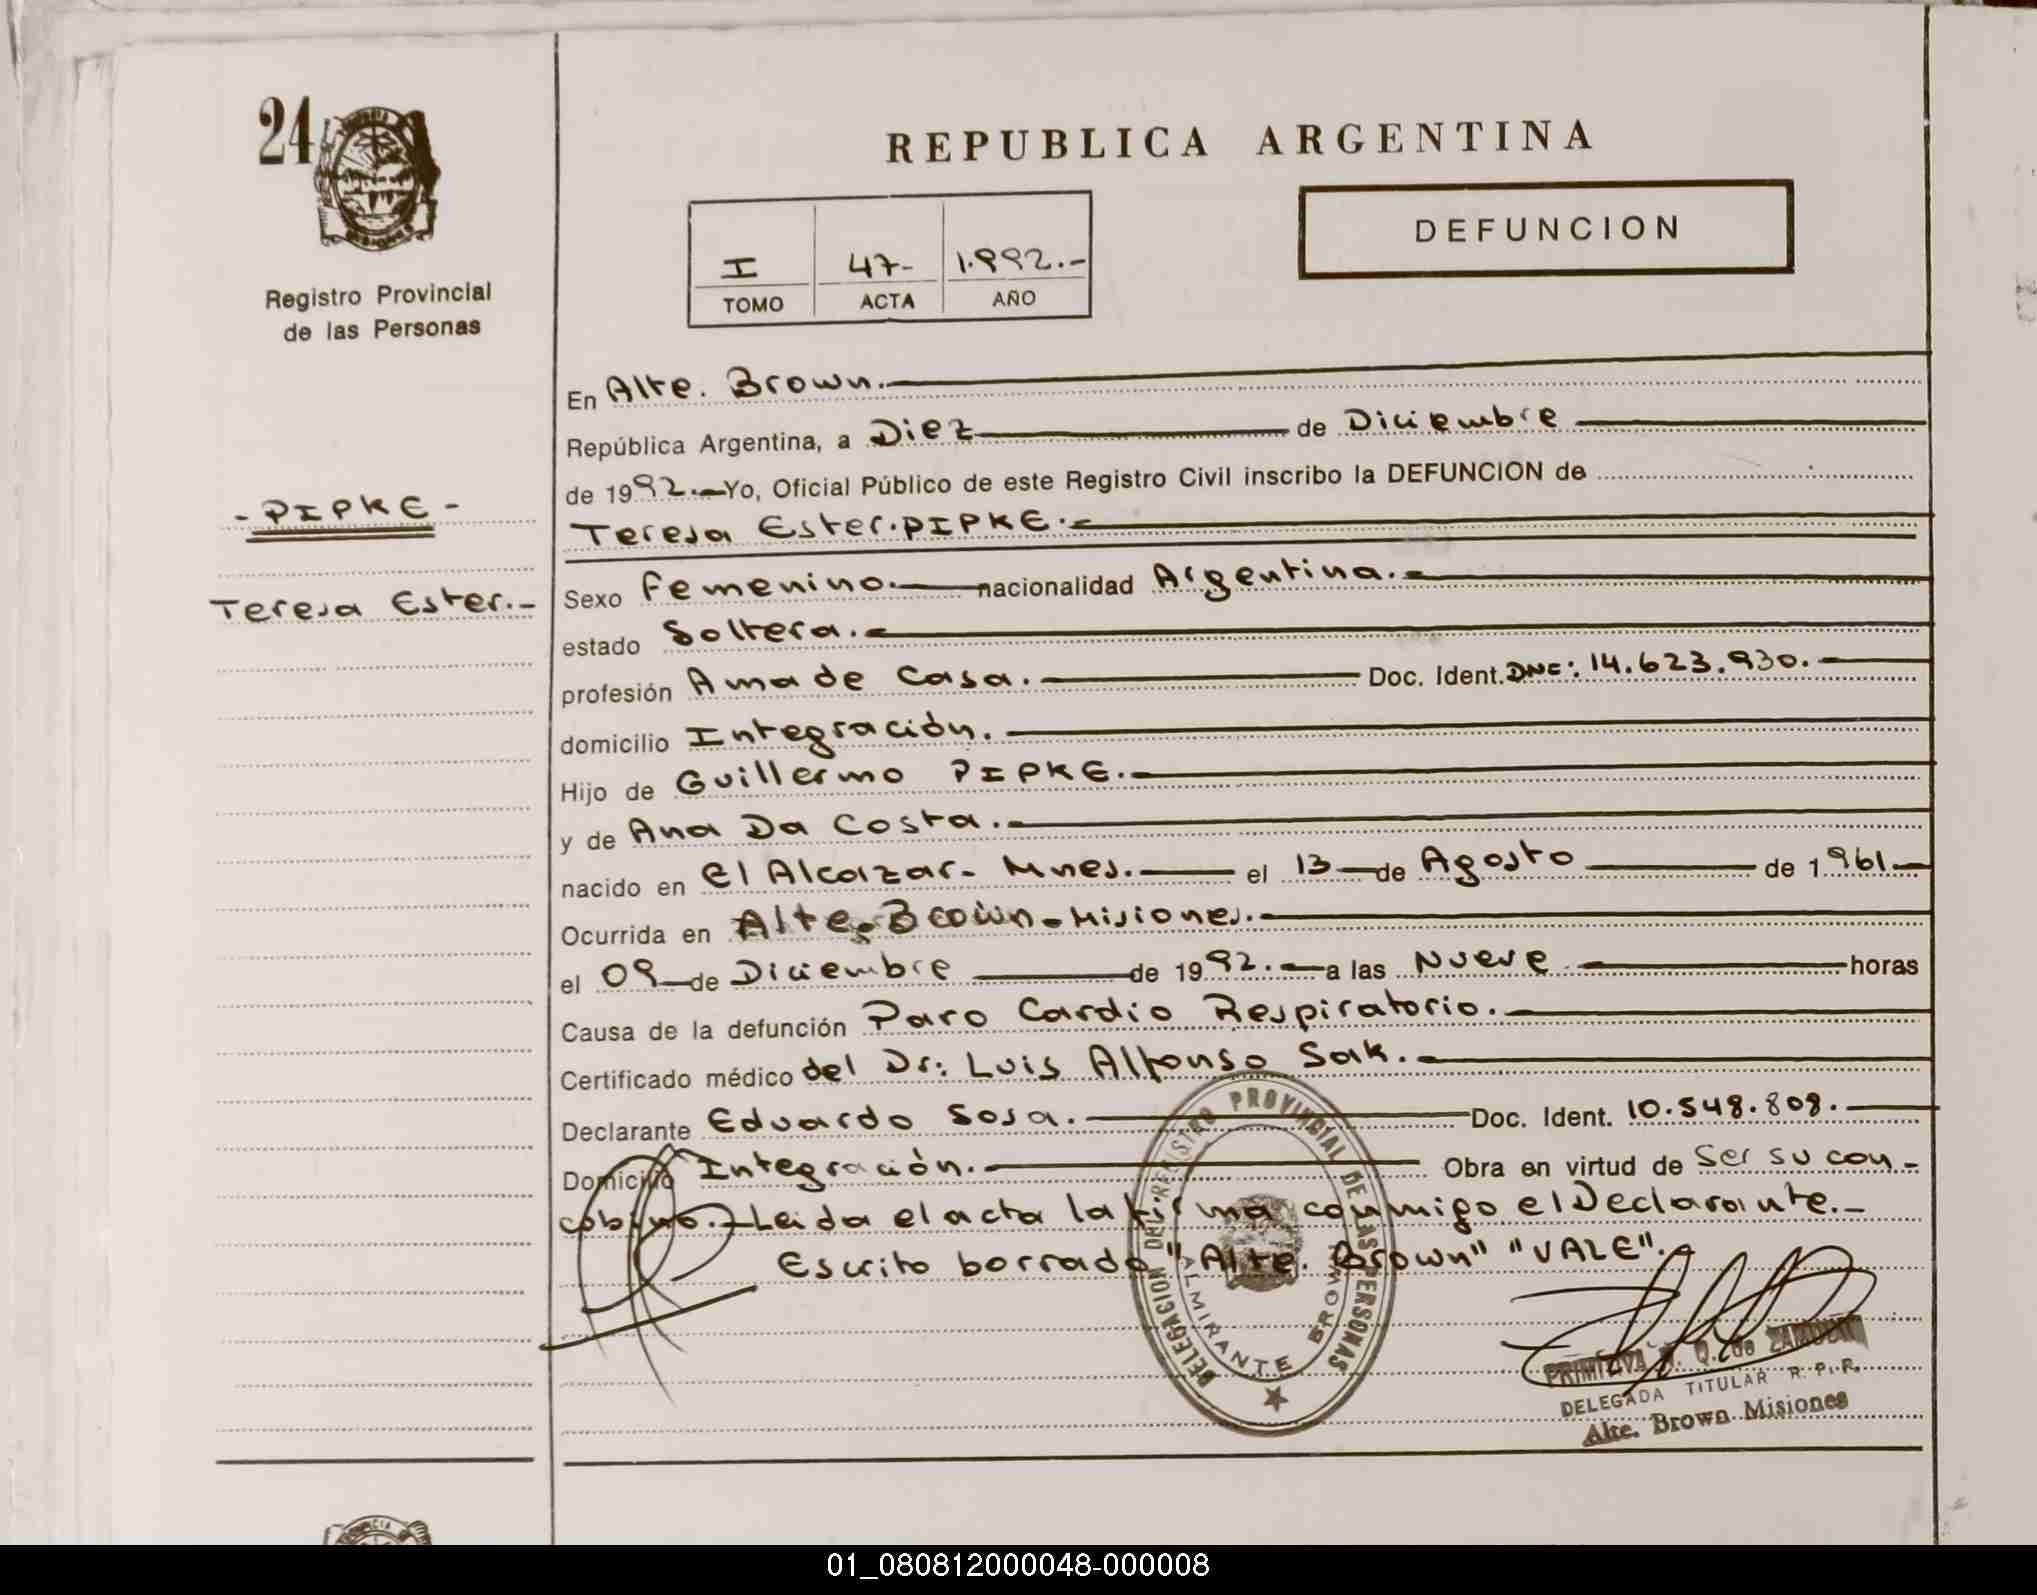 24
Registro Provincial
de las Personas
- PIPKE -
Teresa Ester.-
REPUBLICA ARGENTINA
DEFUNCION
I 47- 1.992.-
TOMO ACTA AÑO
En Alte. Brown.
República Argentina, a Diez de Diciembre
de 1992.- Yo, Oficial Público de este Registro Civil inscribo la DEFUNCION de
Teresa Ester.PIPKE.-
Sexo Femenino. nacionalidad Argentina.-
estado Soltera.-
profesión Ama de Casa. Doc. Ident. 14.623.930.-
domicilio Integración.
Hijo de Guillermo PIPKE.-
y de Ana Da Costa.-
nacido en El Alcazar- Mnes. el 13 de Agosto de 1961
Ocurrida en Alte. Brown-Misiones.-
el 09 de Diciembre de 1992.- a las Nueve horas
Causa de la defunción Paro Cardio Respiratorio.-
Certificado médico del Dr: Luis Alfonso Sak.-
Declarante Eduardo Sosa. Doc. Ident. 10.548.808.-
Domicilio Integración.- Obra en virtud de Ser su con-
cobino.- Leida el acta la firma conmigo el Declarante.-
Escrito borrado "Alte. Brown" "VALE".-
DELEGACION DEL REGISTRO PROVINCIAL DE LAS PERSONAS
ALMIRANTE BROWN
PRIMITIVA Q. de
DELEGADA TITULAR R. P. P.
Alte. Brown Misiones
01_080812000048-000008